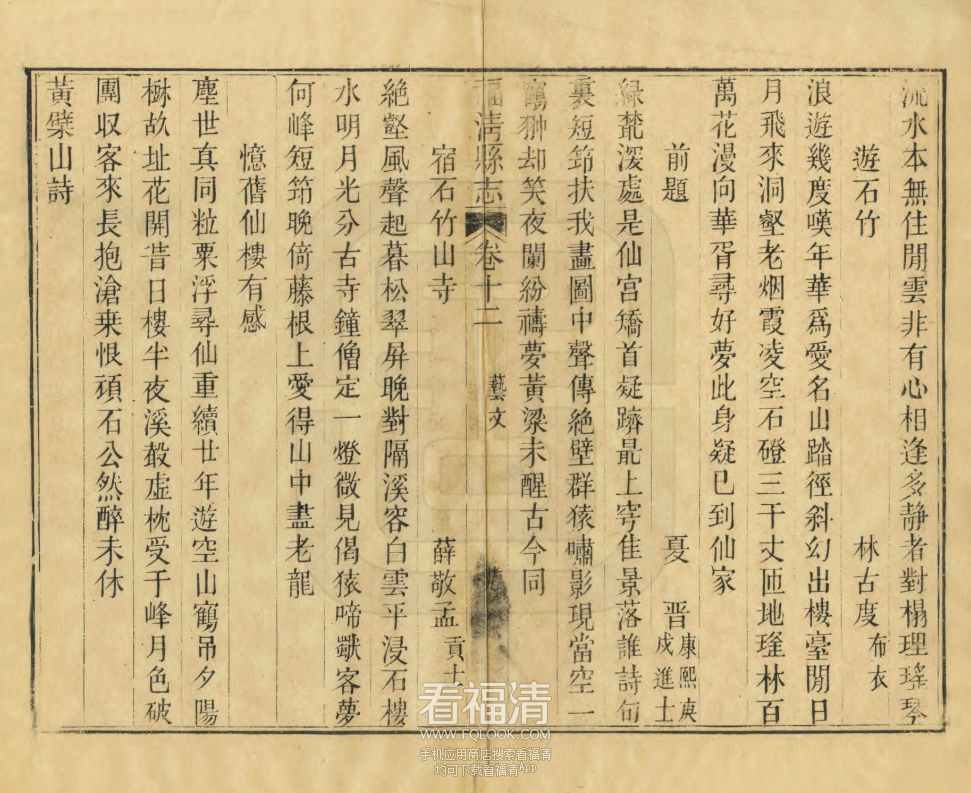 流水本無住閒雲非有心相逢多靜者對榻理瑤琴
遊石竹 林古度布衣
浪遊幾度嘆年華爲愛名山踏徑斜幻出樓臺閒日
月飛來洞壑老烟霞凌空石磴三千丈匝地瑤林百
萬花漫向華胥尋好夢此身疑已到仙家
前題 夏晋康熙庚戌進士
緑蘿深處是仙宫矯首疑躋最上穹佳景落誰詩句
裏短筇扶我畫圖中聲傳絶壁群猿嘯影現當空一
鶴翀却笑夜闌紛禱夢黃梁未醒古今同
福清縣志 卷十二 藝文
宿石竹山寺 薛敬孟貢士
絶壑風聲起暮松翠屏晚對隔溪容白雲平浸石樓
水明月光分古寺鐘僧定一燈微見偈猿啼獸客夢
何峰短筇晚倚藤根上愛得山中盡老龍
憶舊仙樓有感
塵世真同粒粟浮尋仙重續廿年遊空山鶴吊夕陽
樹故址花開昔日樓半夜溪聲虛枕受千峰月色破
團収客來長抱滄桒恨頑石公然醉未休
黃檗山詩
看福清
WWW.FQLOOK.COM
手机应用商店搜索看福清
均可下载看福清App